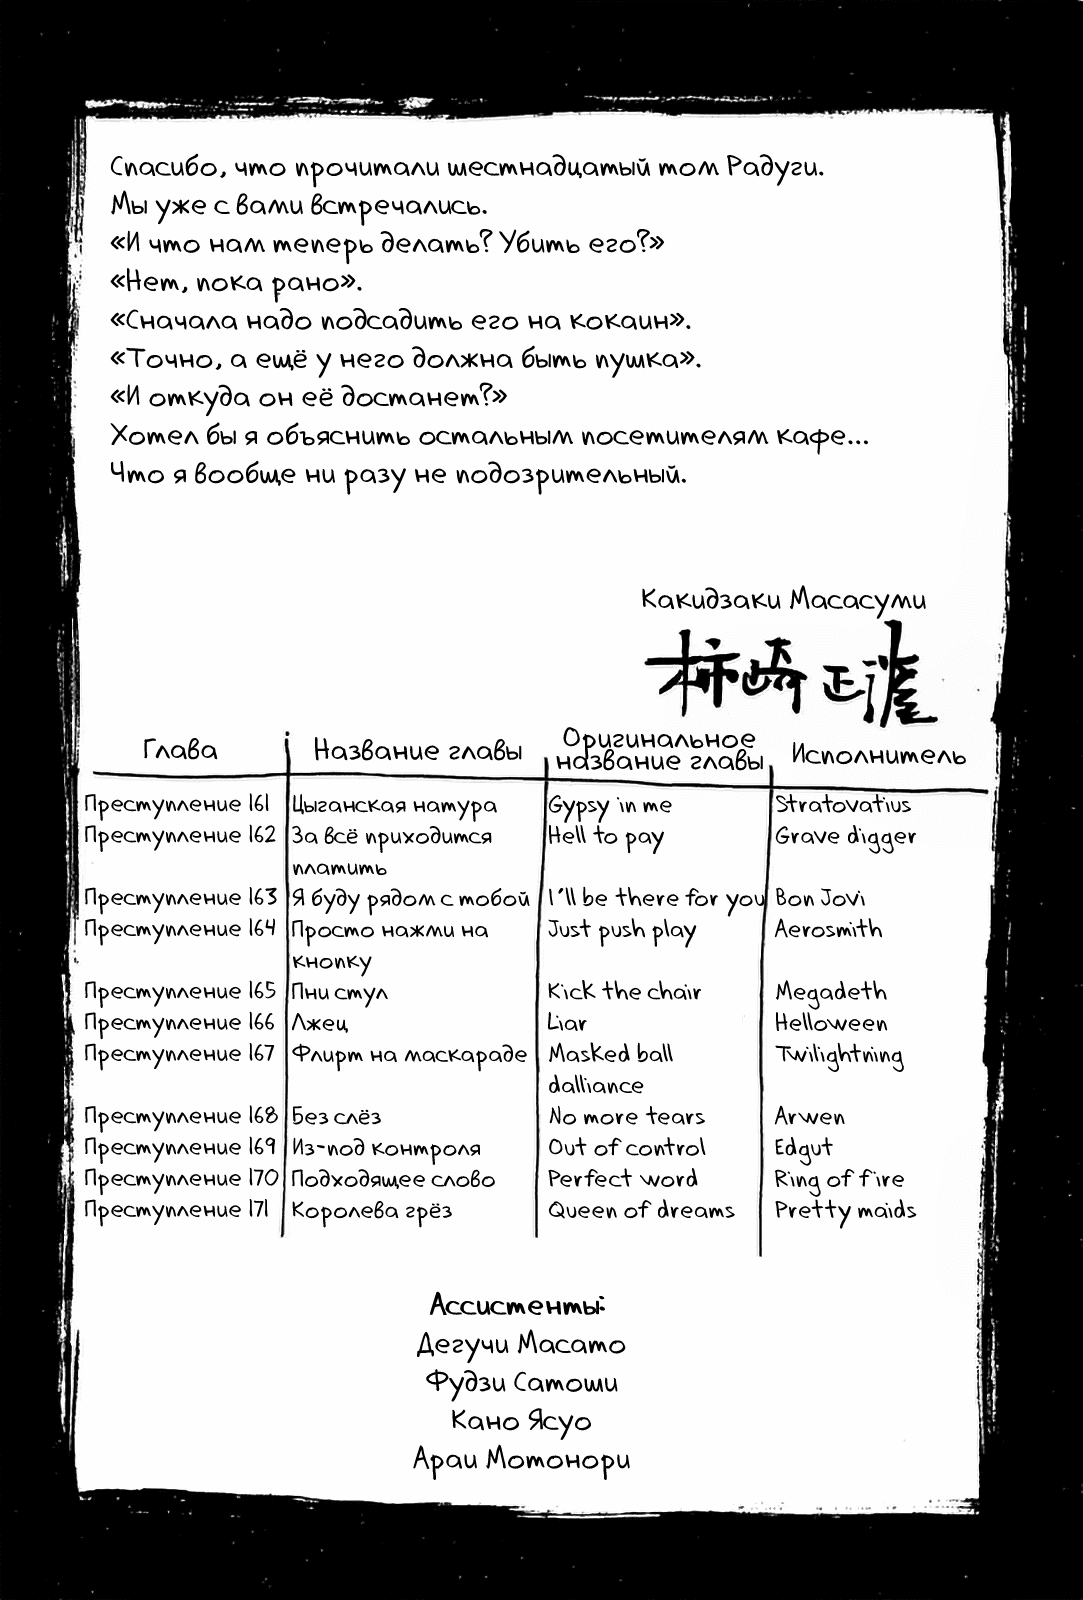 Спасибо, что прочитали шестнадцатый том Радуги.
Мы уже с вами встречались.
«И что нам теперь делать? Убить его?»
«Нет, пока рано».
«Сначала надо подсадить его на кокаин».
«Точно, а ещё у него должна быть пушка».
«И откуда он её достанет?»
Хотел бы я объяснить остальным посетителям кафе...
Что я вообще ни разу не подозрительный.
Какидзаки Масасуми
柿崎正澄
Глава Название главы Оригинальное название главы Исполнитель
Преступление 161 Цыганская натура Gypsy in me Stratovatius
Преступление 162 За всё приходится Hell to pay Grave digger
платить
Преступление 163 Я буду рядом с тобой I'll be there for you Bon Jovi
Преступление 164 Просто нажми на Just push play Aerosmith
кнопку
Преступление 165 Пни стул Kick the chair Megadeth
Преступление 166 Лжец Liar Helloween
Преступление 167 Флирт на маскараде Masked ball Twilightning
dalliance
Преступление 168 Без слёз No more tears Arwen
Преступление 169 Из-под контроля Out of control Edgut
Преступление 170 Подходящее слово Perfect word Ring of fire
Преступление 171 Королева грёз Queen of dreams Pretty maids
Ассистенты:
Дегучи Масато
Фудзи Сатоши
Кано Ясуо
Араи Мотонори